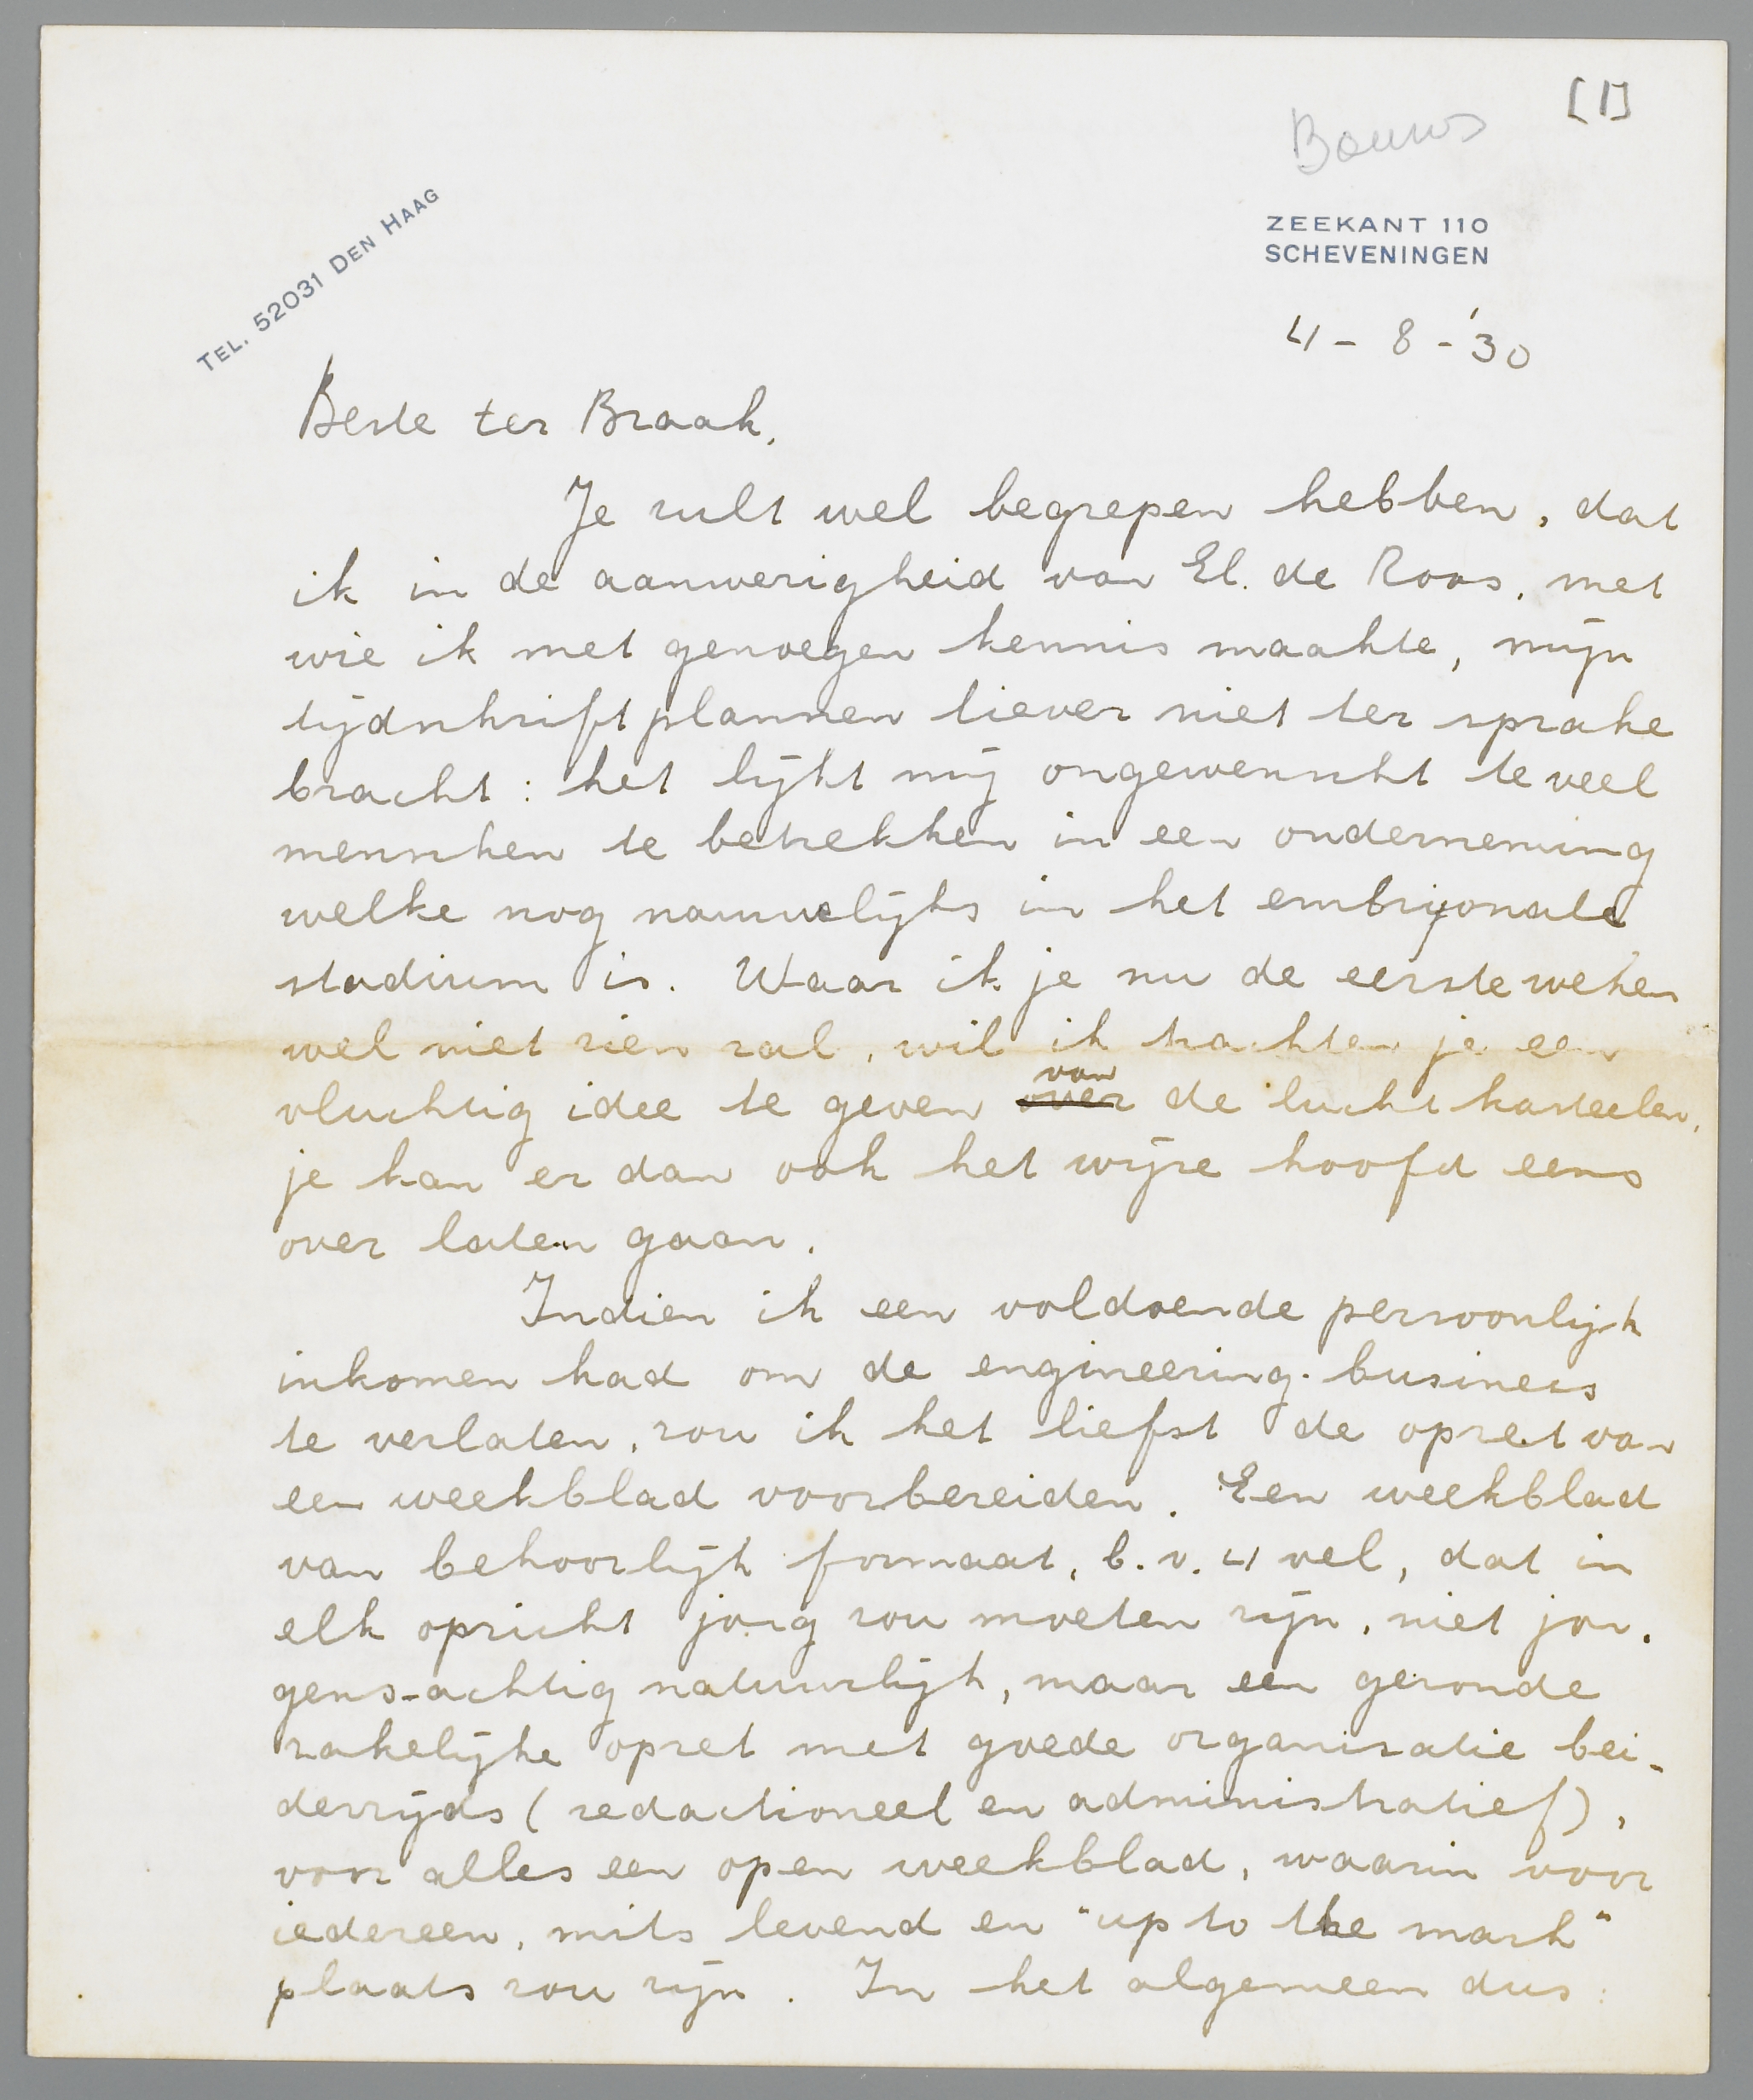 [1]
Bouws
TEL. 52031 DEN HAAG
ZEEKANT 110
SCHEVENINGEN
4 - 8 - '30
Beste ter Braak,
Je zult wel begrepen hebben, dat
ik in de aanwezigheid van El. de Roos, met
wie ik met genoegen kennis maakte, mijn
tijdschriftplannen liever niet ter sprake
bracht: het lijkt mij ongewenscht te veel
menschen te betrekken in een onderneming
welke nog nauwelijks in het embryonale
stadium is. Waar ik je nu de eerste weken
wel niet zien zal, wil ik trachten je een
vluchtig idee te geven over van de luchtkasteelen,
je kan er dan ook het wijze hoofd eens
over laten gaan.
Indien ik een voldoende persoonlijk
inkomen had om de engineering-business
te verlaten, zou ik het liefst de opzet van
een weekblad voorbereiden. Een weekblad
van behoorlijk formaat, b.v. 4 vel, dat in
elk opzicht jong zou moeten zijn, niet jon-
gens-achtig natuurlijk, maar een gezonde
zakelijke opzet met goede organisatie bei-
derzijds (redactioneel en administratief),
voor alles een open weekblad, waarin voor
iedereen, mits levend en "up to the mark"
plaats zou zijn. In het algemeen dus: